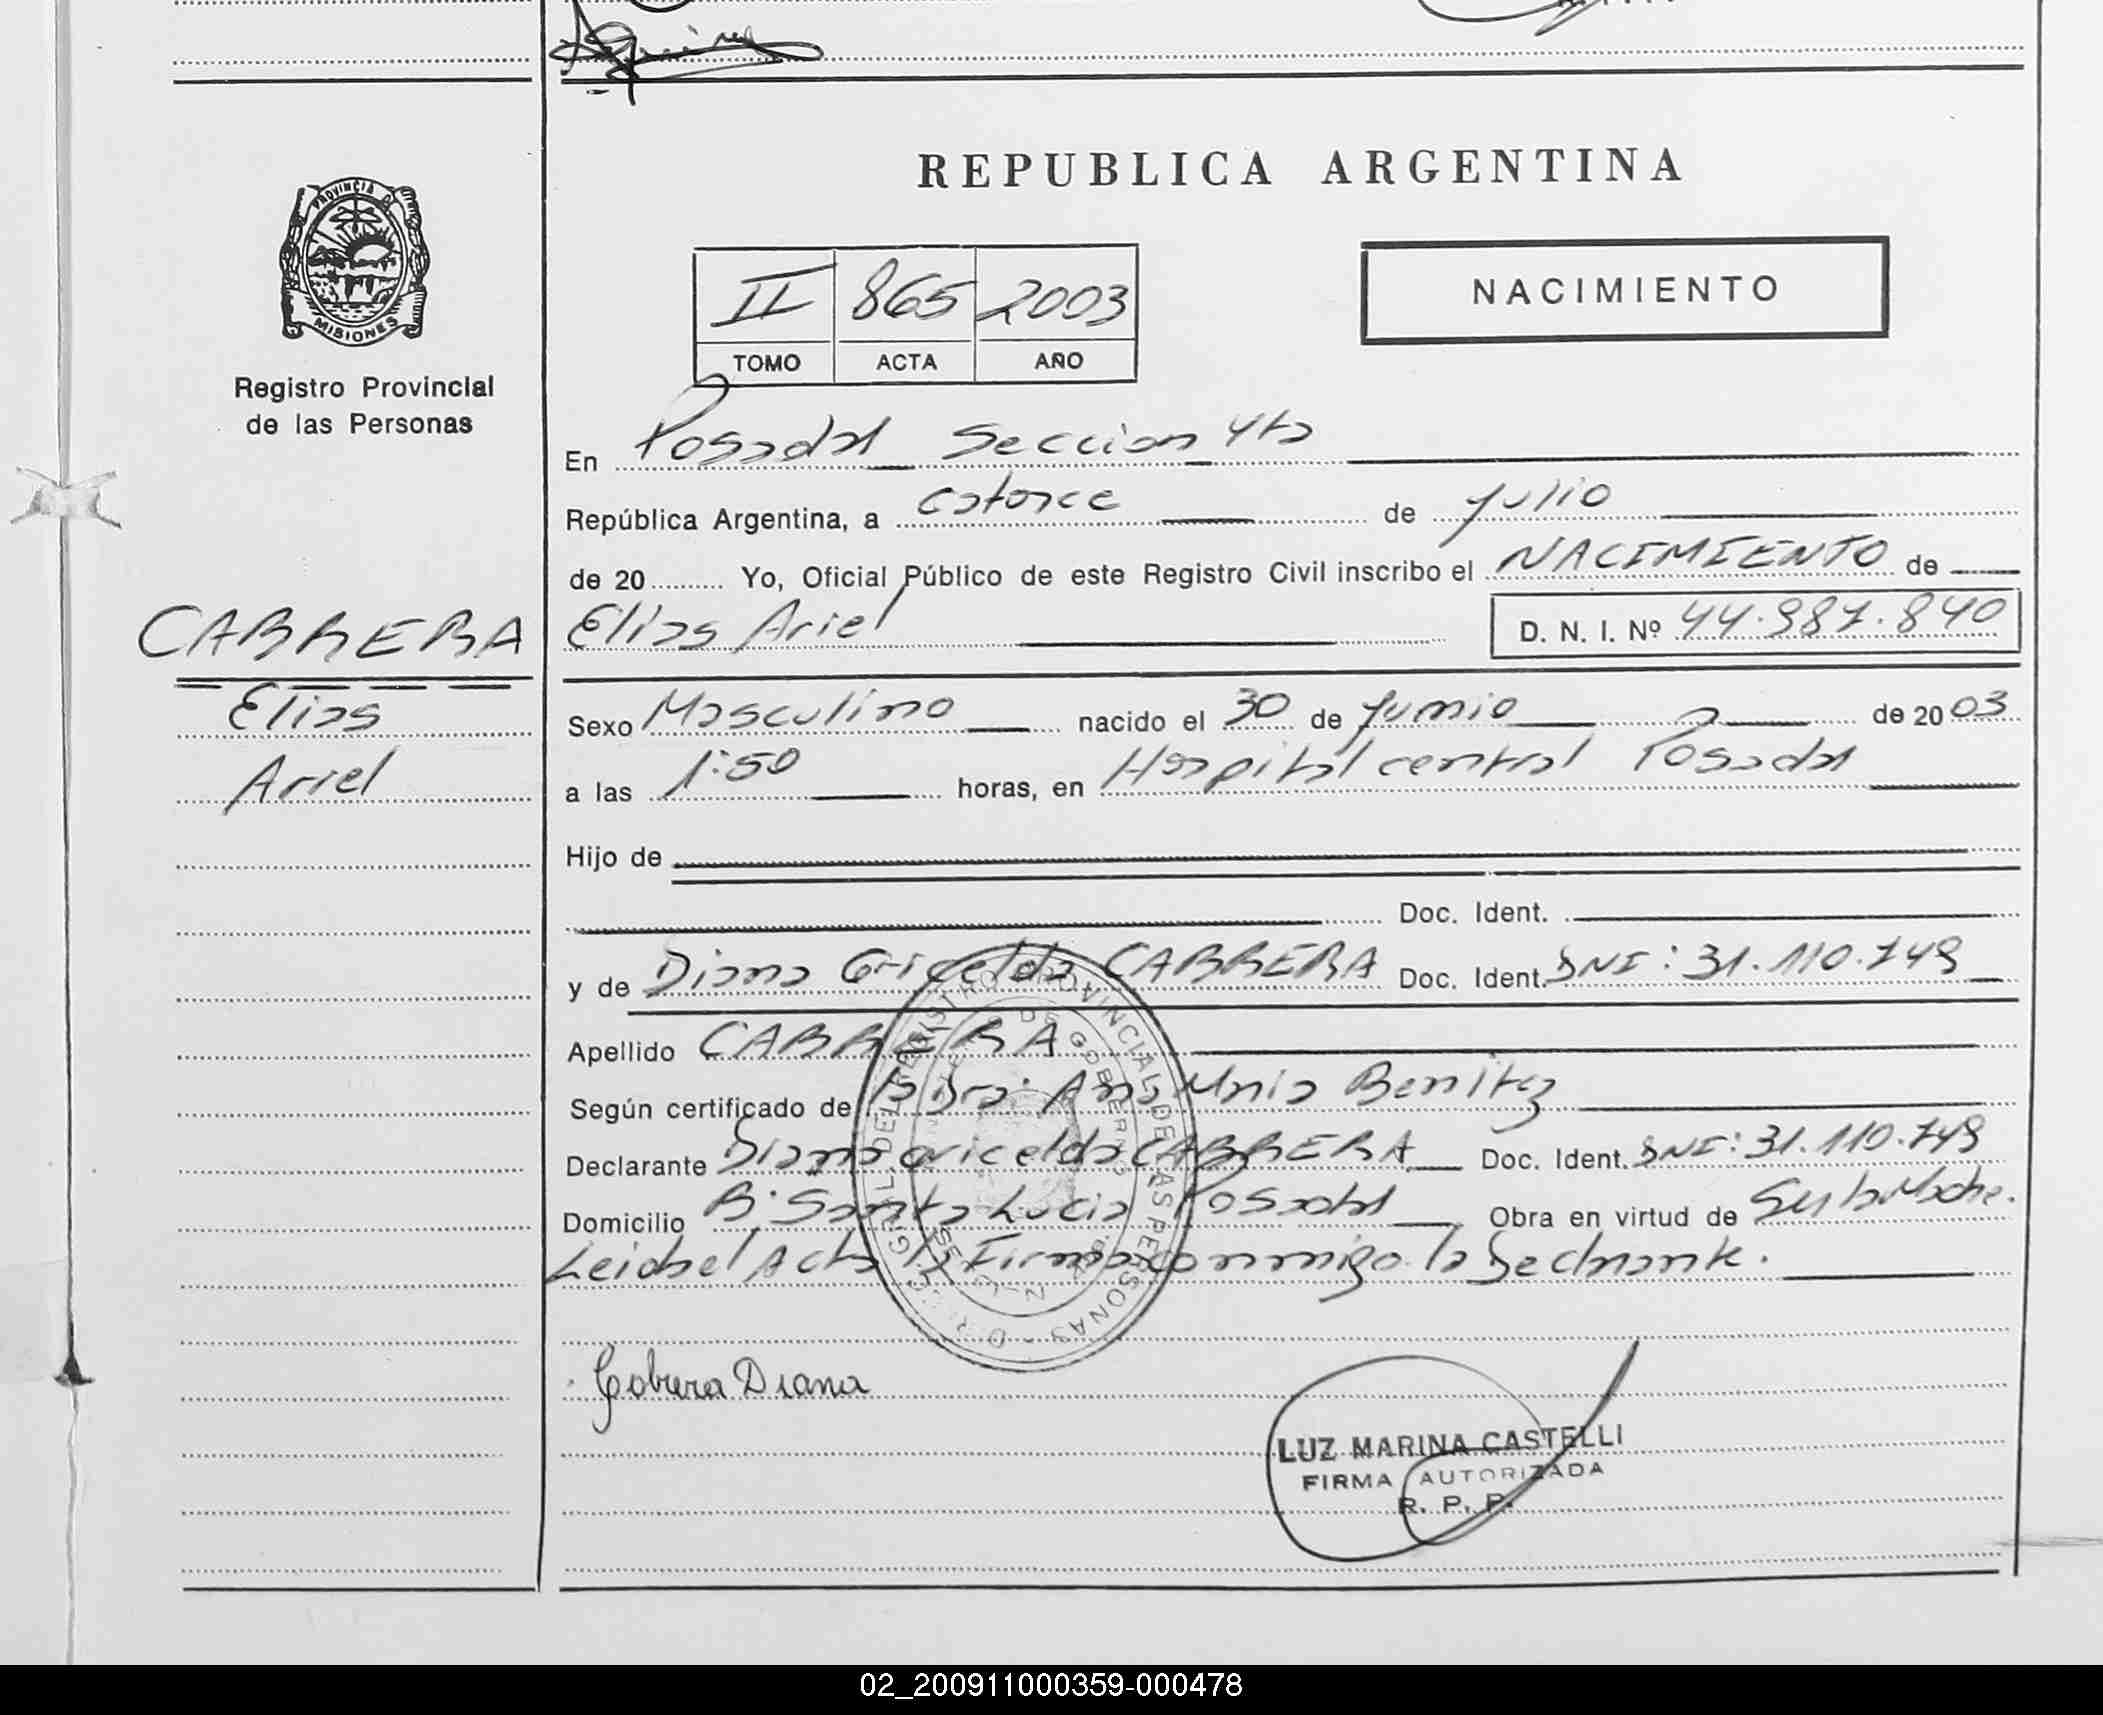 REPUBLICA ARGENTINA
PROVINCIA D
MISIONES
Registro Provincial
de las Personas
II 865 2003
TOMO ACTA AÑO
NACIMIENTO
En Posadas Seccion 4ta
República Argentina, a catorce de julio
de 20 ........ Yo, Oficial Público de este Registro Civil inscribo el NACIMIENTO de
CABRERA
Elias Ariel D. N. I. Nº 44.987.840
Elias
Ariel
Sexo Masculino nacido el 30 de junio de 2003
a las 1:50 horas, en Hospital central Posadas
Hijo de
Doc. Ident.
y de Diana Gricelda CABRERA Doc. Ident. DNI: 31.110.749
Apellido CABRERA
Según certificado de la Dra. Ana Maria Benitez
Declarante Diana Gricelda CABRERA Doc. Ident. DNI: 31.110.749
Domicilio B. Santa Lucia Posadas Obra en virtud de Ser la Madre.
Leida el Acta la Firma conmigo la Declarante.
Cabrera Diana
LUZ MARINA CASTELLI
FIRMA AUTORIZADA
R. P. P.
02_200911000359-000478